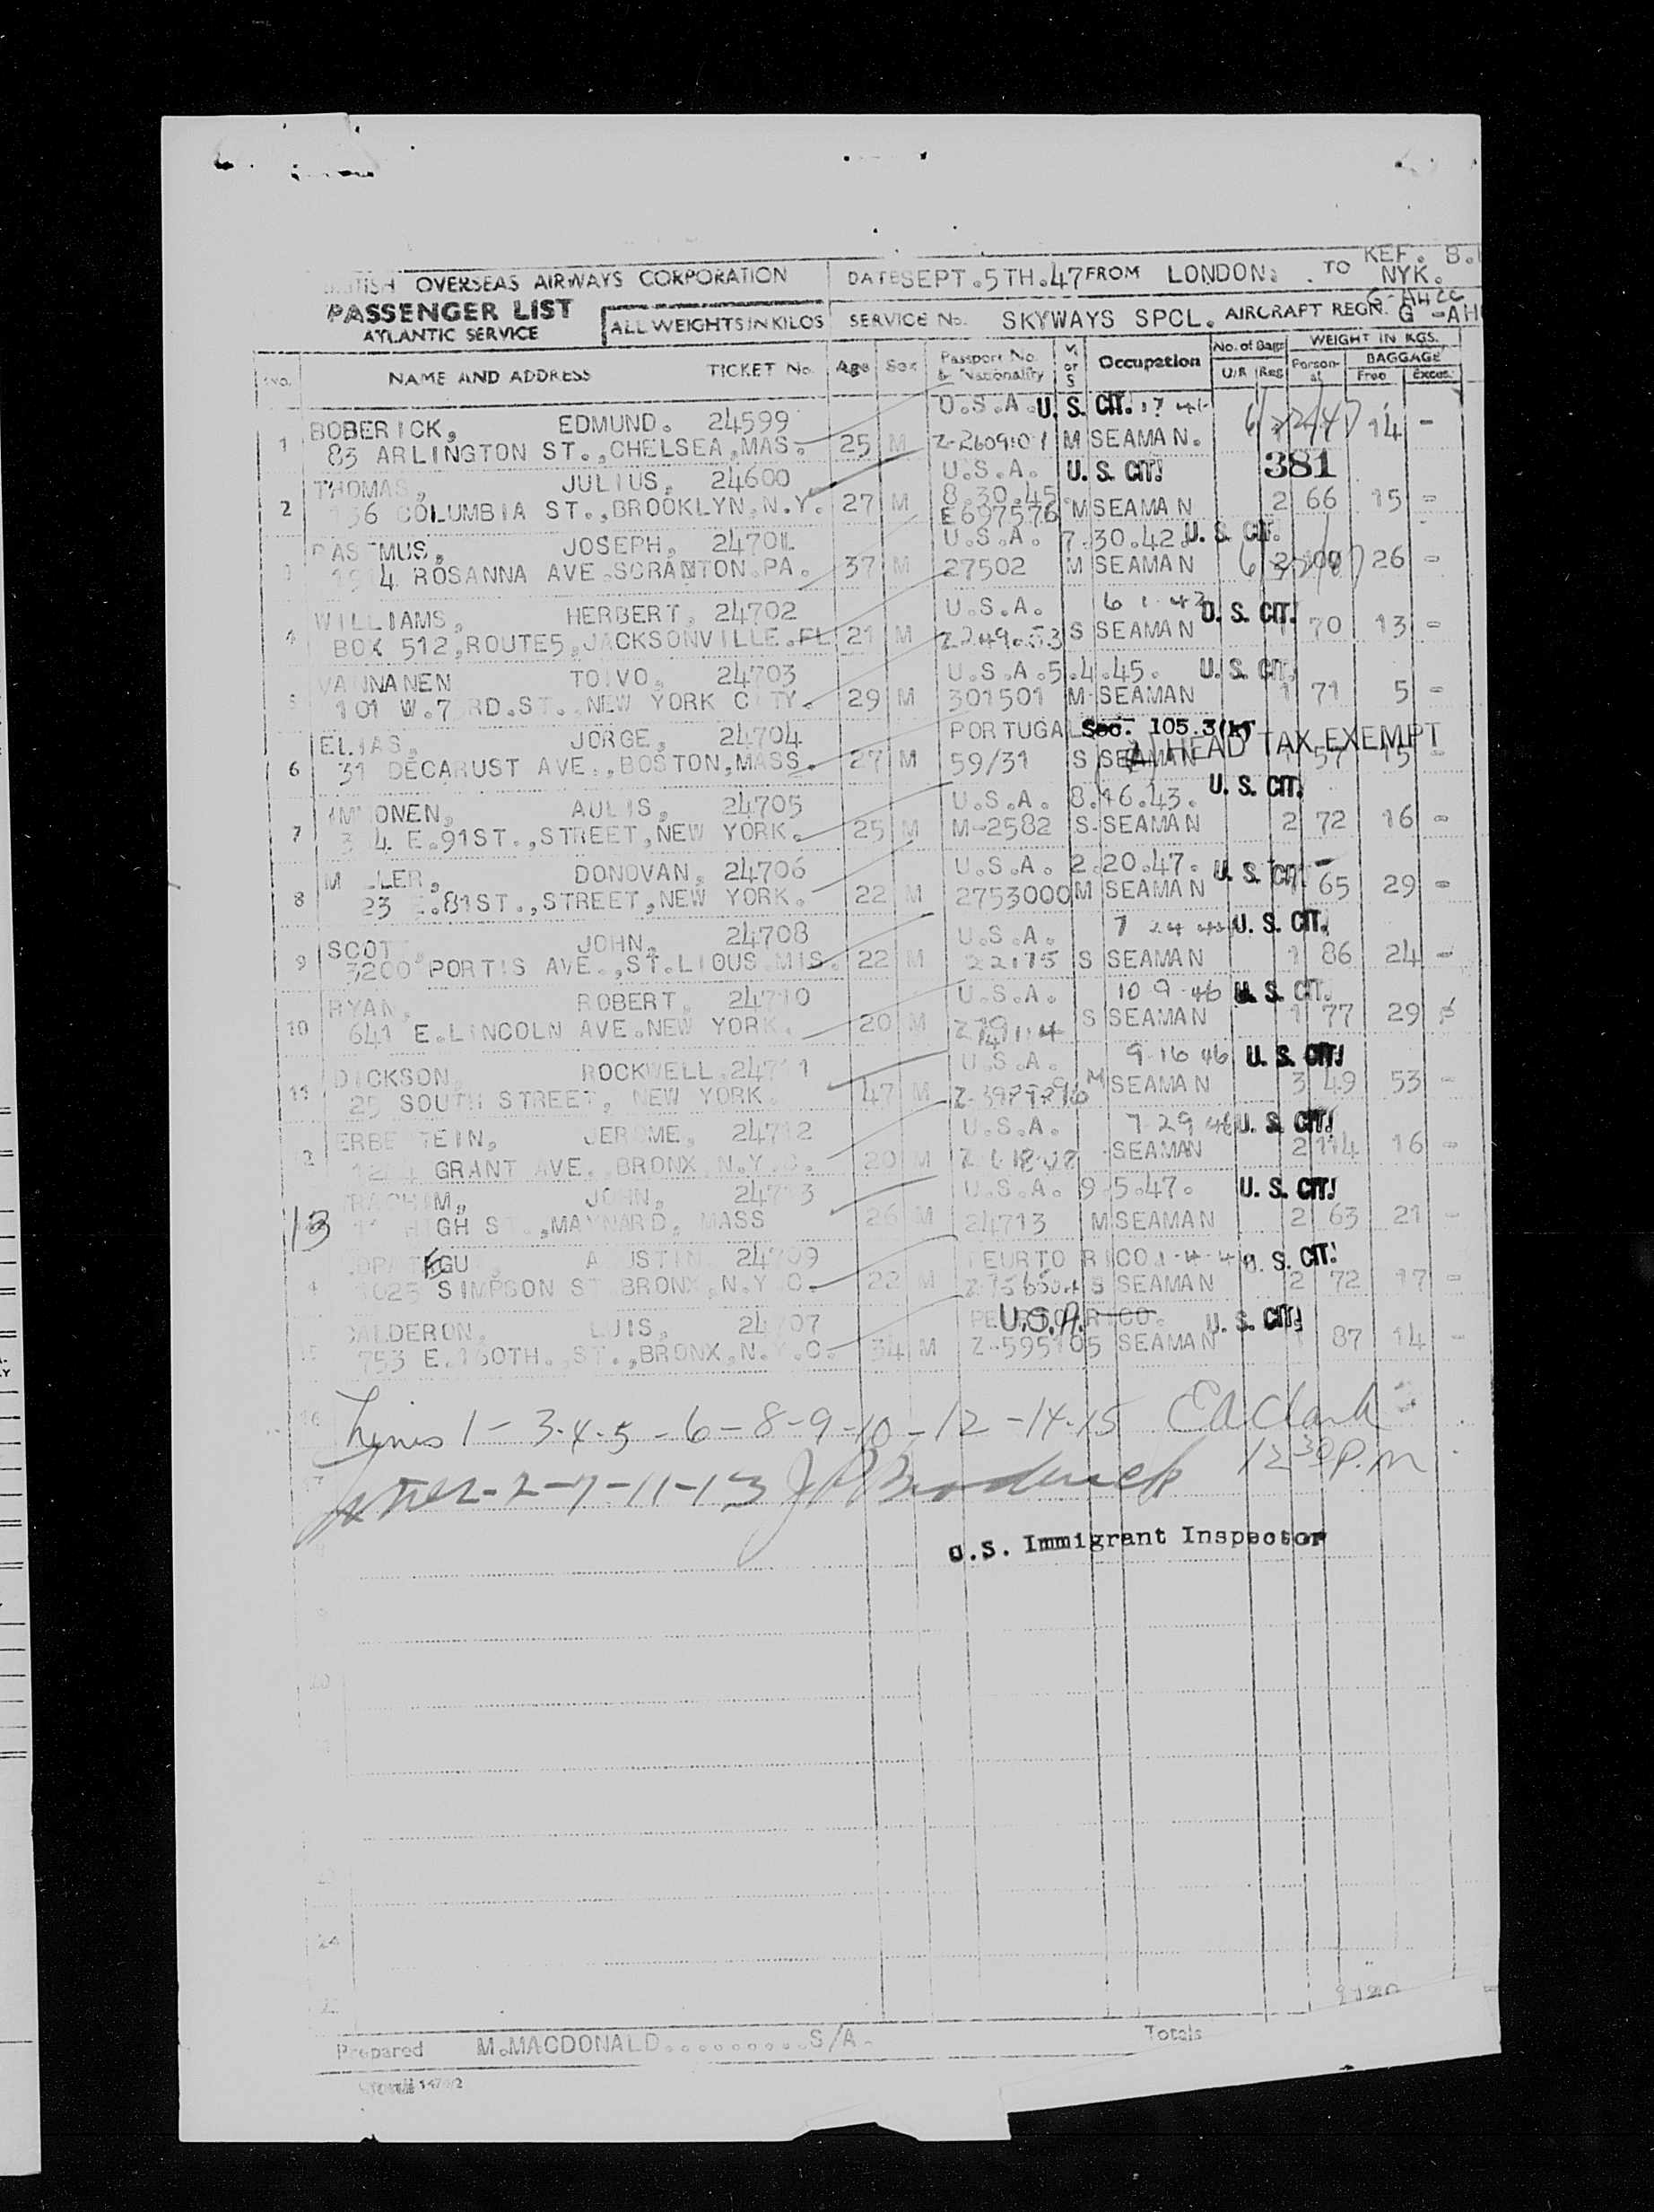 OVERSEAS AIRWAYS CORPORATION DATE SEPT.5TH.47 FROM LONDON. TO KEF.
NYK.
PASSENGER LIST
ATLANTIC SERVICE
ALL WEIGHTS IN KILOS SERVICE No. SKYWAYS SPCL. AIRCRAFT REGN. G-AH
NAME AND ADDRESS TICKET No. Age Sex Passport No. & Nationality M or S Occupation No. of Bags U/R Reg WEIGHT IN KGS. Personal BAGGAGE Free Excess
BOBERICK, EDMUND. 24599 U.S.A. U. S. CIT.
1 83 ARLINGTON ST.,CHELSEA,MAS. 25 M M SEAMAN. 14 -
381
THOMAS, JULIUS, 24600 U.S.A. U. S. CIT.
8.30.45.
2 COLUMBIA ST.,BROOKLYN,N.Y. 27 M E697576 M SEAMAN 2 66 15 -
JOSEPH, U.S.A. 7.30.42. U. S. CIT.
3 ROSANNA AVE.SCRANTON.PA. 37 M 27502 M SEAMAN 2 26 -
WILLIAMS, HERBERT. 24702 U.S.A. U. S. CIT.
4 BOX 512,ROUTE5,JACKSONVILLE.FL 21 M S SEAMAN 70 13 -
TOIVO, 24703 U.S.A.5.4.45. U. S. CIT.
5 101 W.7 RD.ST. NEW YORK C TY. 29 M 301501 M SEAMAN 1 71 5 -
ELIAS, JORGE, 24704 PORTUGAL Sec. 105.3(k)
HEAD TAX EXEMPT
6 31 DECARUST AVE.,BOSTON,MASS. 27 M 59/31 S SEAMAN 57 15 -
ONEN, AULIS, 24705 U.S.A. 8.16.43. U. S. CIT.
7 3 4 E.91ST.,STREET,NEW YORK. 25 M M-2582 S SEAMAN 2 72 16 -
M LLER, DONOVAN, 24706 U.S.A. 2.20.47. U. S. CIT.
8 23 E.81ST.,STREET,NEW YORK. 22 M 2753000 M SEAMAN 65 29 -
SCOT JOHN, 24708 U.S.A. U. S. CIT.
9 3200 PORTIS AVE.,ST.LIOUS MIS. 22 M S SEAMAN 1 86 24 -
RYAN, ROBERT, 24710 U.S.A. 10 9 46 U. S. CIT.
10 641 E.LINCOLN AVE.NEW YORK. 20 M S SEAMAN 1 77 29
DICKSON, ROCKWELL.24711 U.S.A. 9-16 46 U. S. CIT.
11 25 SOUTH STREET, NEW YORK. 47 M M SEAMAN 3 49 53 -
JEROME, 24712 U.S.A. 7 29 46 U. S. CIT.
GRANT AVE. BRONX N.Y.C. 20 M SEAMAN 2 114 16 -
JOHN, 24713 U.S.A. 9.5.47. U. S. CIT.
13 HIGH ST.,MAYNARD, MASS 26 M 24713 M SEAMAN 2 63 21 -
24709 U. S. CIT.
SIMPSON ST BRONX,N.Y.C. 22 M S SEAMAN 2 72 17 -
CALDERON, LUIS, 24707 U.S.A. U. S. CIT.
15 753 E.160TH.,ST.,BRONX,N.Y.C. 34 M Z-595105 SEAMAN 87 14 -
Lines 1-3-4-5-6-8-9-10-12-14-15 EA Clark
12 30 P.m
Lines-2-7-11-13 J P Broderick
U.S. Immigrant Inspector
24
Prepared M.MACDONALD.........S/A. Totals